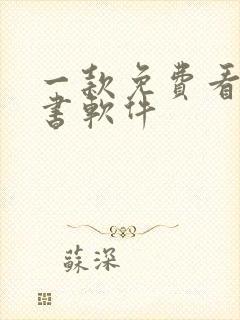 一款免費看
書軟件
蘇深